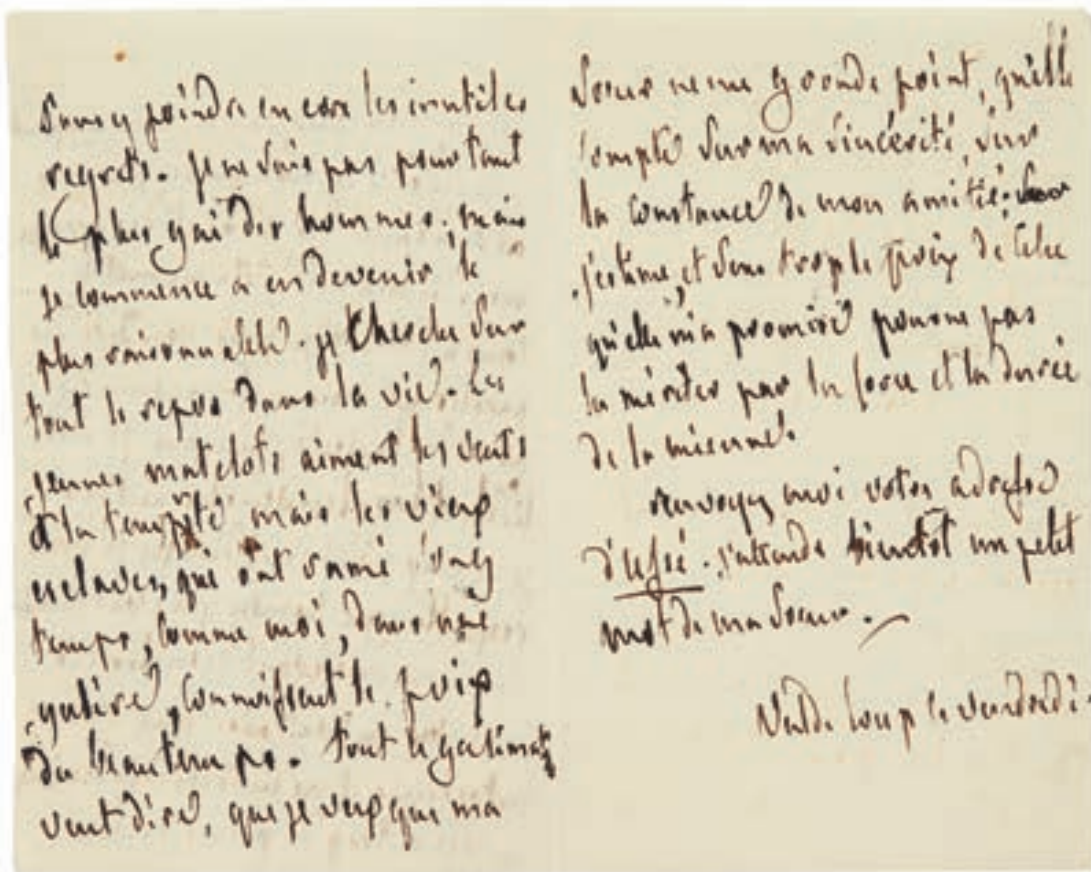 sans y joindre encore les inutiles
regrets. je ne suis pas pourtant
le plus gai des hommes; mais
je commence a en devenir le
plus raisonnable. je cherche sur
tout le repos dans la vie. Les
jeunes matelots aiment les vents
et la tempête mais les vieux
esclaves, qui ont ramé long
temps, comme moi, dans une
galère, connoissent le prix
du beau temps. tout ce galimatias
veut dire, que je veux que ma
Soeur ne me gronde point, qu'elle
compte sur ma sincérité, sur
la constance de mon amitié;
j'estime, et sens trop le prix de celle
qu'elle m'a promise pour ne pas
la mériter par la force et la durée
de la mienne.
renvoyez moi votre adresse
d'ussé. j'attends bientôt un petit
mot de ma Soeur.
Val de loup ce vendredi.